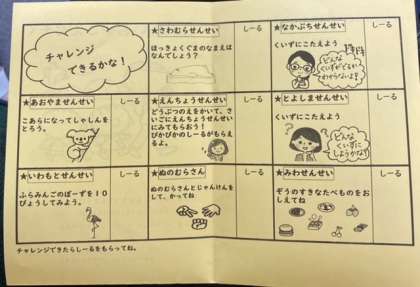 チャレンジ
できるかな！
★さわむらせんせい
しーる
ほっきょくぐまのなまえは
なんでしょう？
★なかぶちせんせい
しーる
くいずにこたえよう
どんな
くいずがでるか
わからないよ？
★あおやませんせい
しーる
こあらになってしゃしんを
とろう。
★えんちょうせんせい
しーる
どうぶつのえをかいて、さ
いごにえんちょうせんせい
にみてもらおう！
ぴかぴかのしーるがもらえ
るよ。
★とよしませんせい
しーる
くいずにこたえよう
どんな
くいずに
しようかな？
★いわもとせんせい
しーる
ふらみんごのぽーずを１０
びょうしてみよう。
★ぬのむらさん
しーる
ぬのむらさんとじゃんけんを
して、かってね
★みわせんせい
しーる
ぞうのすきなたべものをお
しえてね
チャレンジできたらしーるをもらってね。